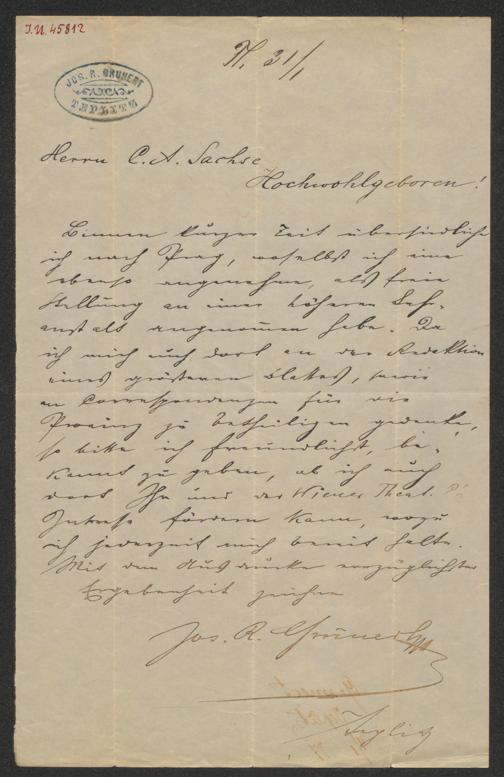 I.N. 45812
31/1
JOS. R. GRUNERT
TEPLITZ
Herrn C. A. Sachse
Hochwohlgeboren!
Binnen kurzer Zeit übersiedle
ich nach Prag, woselbst ich eine
ebenso angenehme, als freie
Stellung an einer höheren Leh-
anstalt angenommen habe. Da
ich mich auch dort an der Redaktion
eines größeren Blattes, sowie
an Correspondenzen für die
Provinz zu betheiligen gedenke,
so bitte ich freundlichst, be-
kannt zu geben, ob ich auch
dort Ihr und der Wiener Theat.
Interesse fördern kann, wozu
ich jederzeit mich bereit halte.
Mit dem Ausdrucke vorzüglichster
Ergebenheit zeichne
Jos. R. Grünert
Teplitz